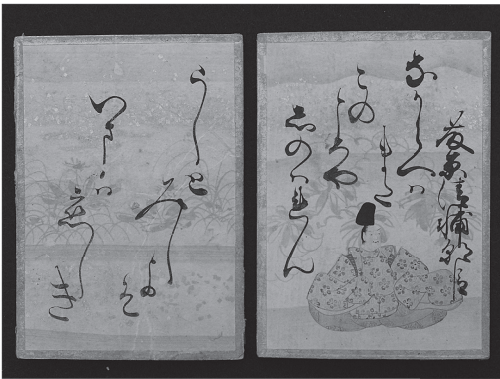 藤原清輔朝臣
なからへハ
また
この
ころや
志のハれん
うしと
みしよ
そ
いまハ
恋し
き